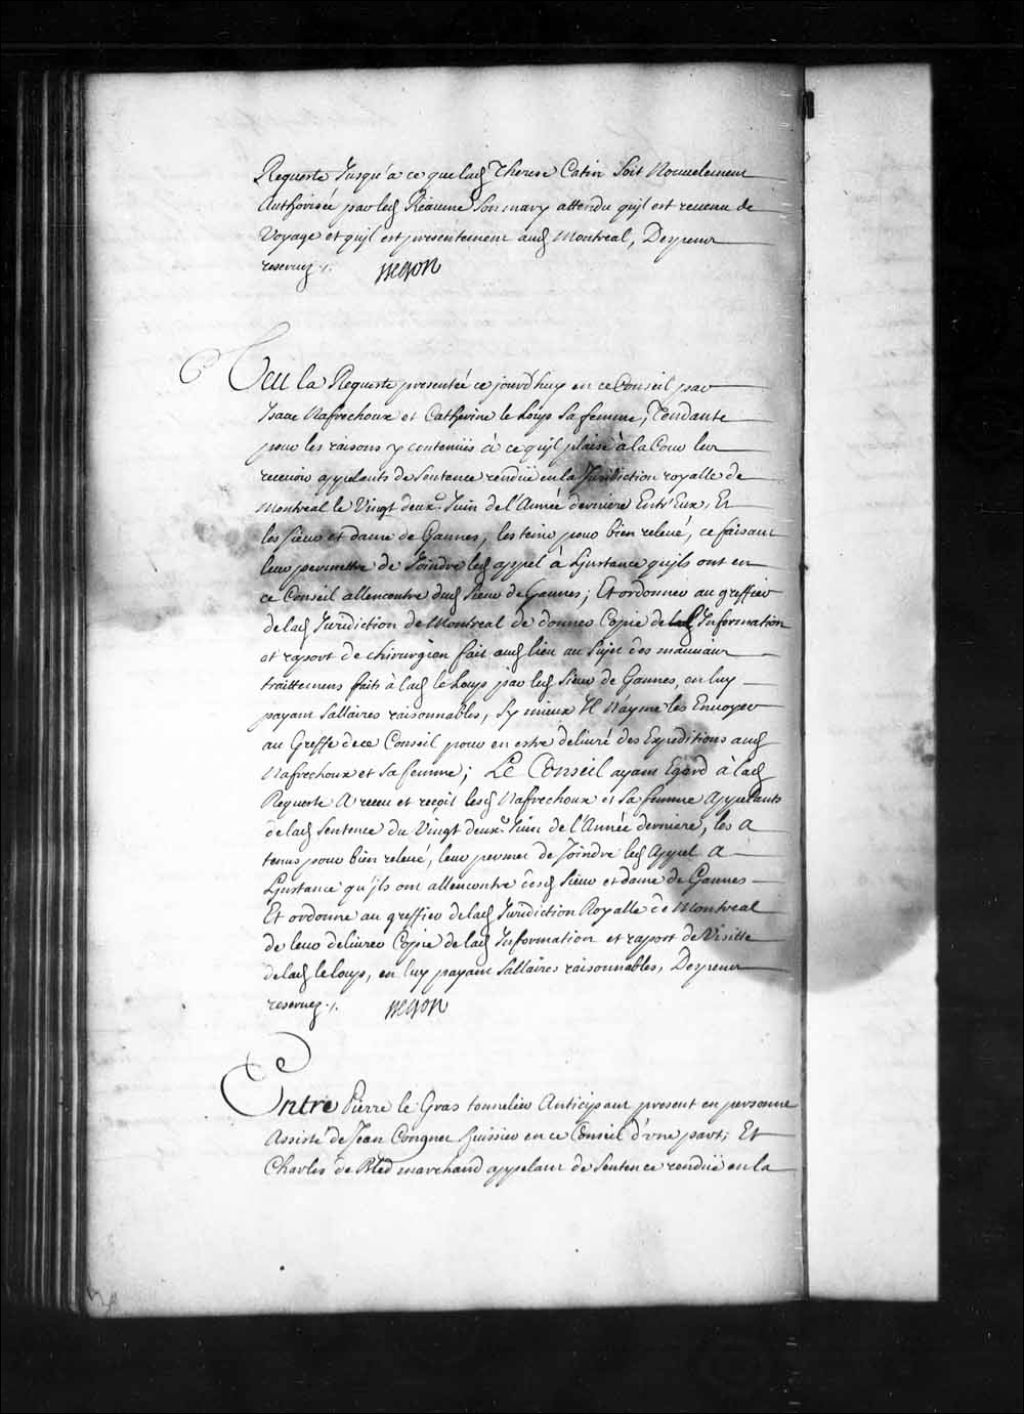 Requeste Jusqu'a ce que lad Therese Catin soit Nouuelement
Authorisée par led Réaume son mary attendu qu'jl est reuenu de
Voyage et qu'jl est presentement aud Montreal, Despens
reseruez ./. Begon
Veu la Requeste presentée ce jourd'huy en ce Conseil par
Isaac Nafrechoux et Catherine le Loup sa femme, Tendante
pour les raisons y contenües à ce qu'jl plaise à la Cour les
receuoir appelants de Sentence rendüe en la Jurisdiction royalle de
Montreal le Vingt deuxe Juin de l'Année derniere Entr'Eux, Et
les Sieur et dame de Gannes, les tenir pour bien releué, ce faisant
leur permettre de Joindre led appel à L'jnstance qu'jls ont en
ce Conseil allencontre dud Sieur de Gannes; Et ordonner au greffier
de lad Juridiction de Montreal de donner Copie de lad Information
et raport de chirurgien fait aud lieu au sujet des mauuais
traittemens faits à lad le Loup par led Sieur de Gannes, en luy
payant sallaires raisonnables, sy mieux Il N'ayme les Enuoyer
au Greffe de ce Conseil pour en estre deliuré des Expeditions aud
Nafrechoux et sa femme; Le Conseil ayant Egard à lad
Requeste A receu et reçoit lesd Nafrechoux et sa femme Appelants
de lad Sentence du Vingt deuxe Juin de l'Année derniere, les a
tenus pour bien releué, leur permet de Joindre led Appel A
L'jnstance qu'jls ont allencontre desd Sieur et dame de Gannes
Et ordonne au greffier de lad Juridiction Royalle de Montreal
de leur deliurer Copie de lad Information et raport de Visitte
de lad le Loup, en luy payant sallaires raisonnables, Despens
reseruez ./. Begon
Entre Pierre le Gras tonnelier Anticipant present en personne
Assisté de Jean Congnet huissier en ce Conseil d'vne part; Et
Charles de Bled marchand appelant de Sentence rendüe en la